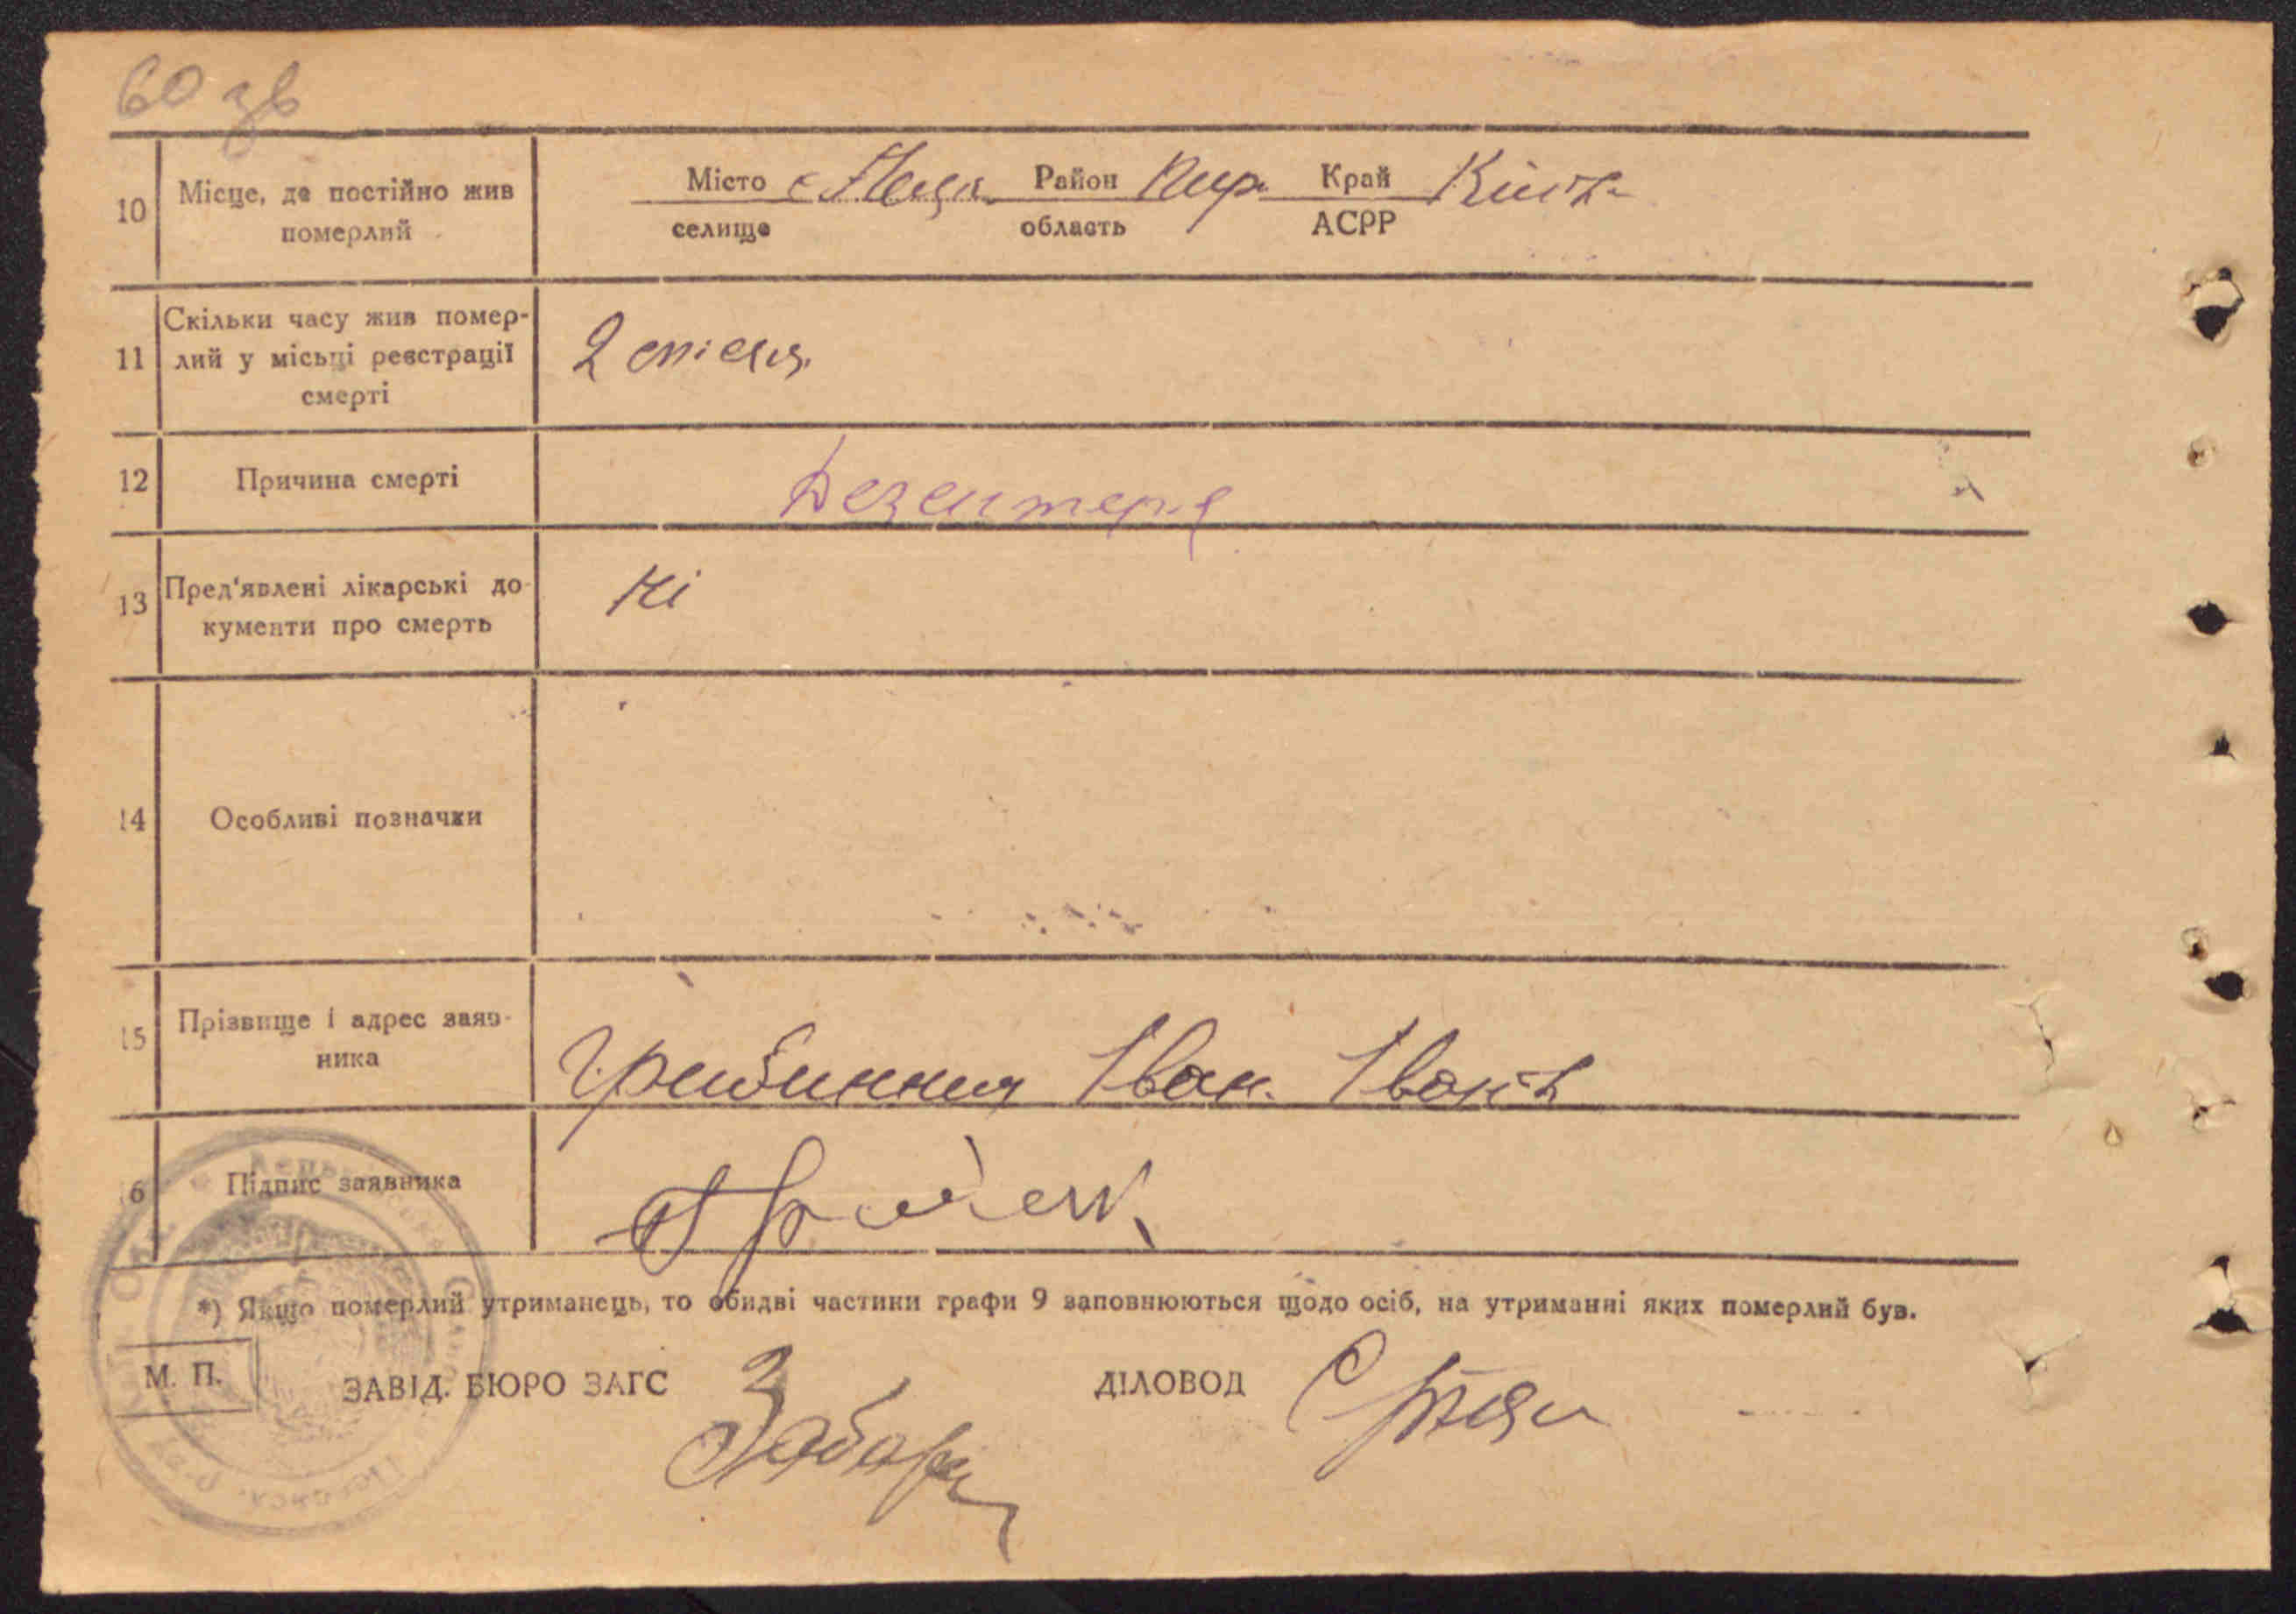 60 зв
10 Місце, де постійно жив померлий
Місто с Район Пир. Край Київ
селище область АСРР
11 Скільки часу жив помер-
лий у місьці реєстрації
смерті
2 місяц.
12 Причина смерті
Дезентерія
13 Пред'явлені лікарські до-
кументи про смерть
Ні
14 Особливі позначки
15 Прізвище і адрес заяв-
ника
Іван. Іванів
16 Підпис заявника
*) Якщо померлий утриманець, то обидві частини графи 9 заповнюються щодо осіб, на утриманні яких померлий був.
М. П. ЗАВІД. БЮРО ЗАГС ДІЛОВОД